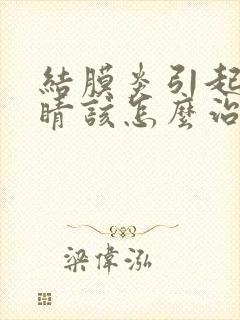 結膜炎引起
睛該怎麼治
梁偉泓